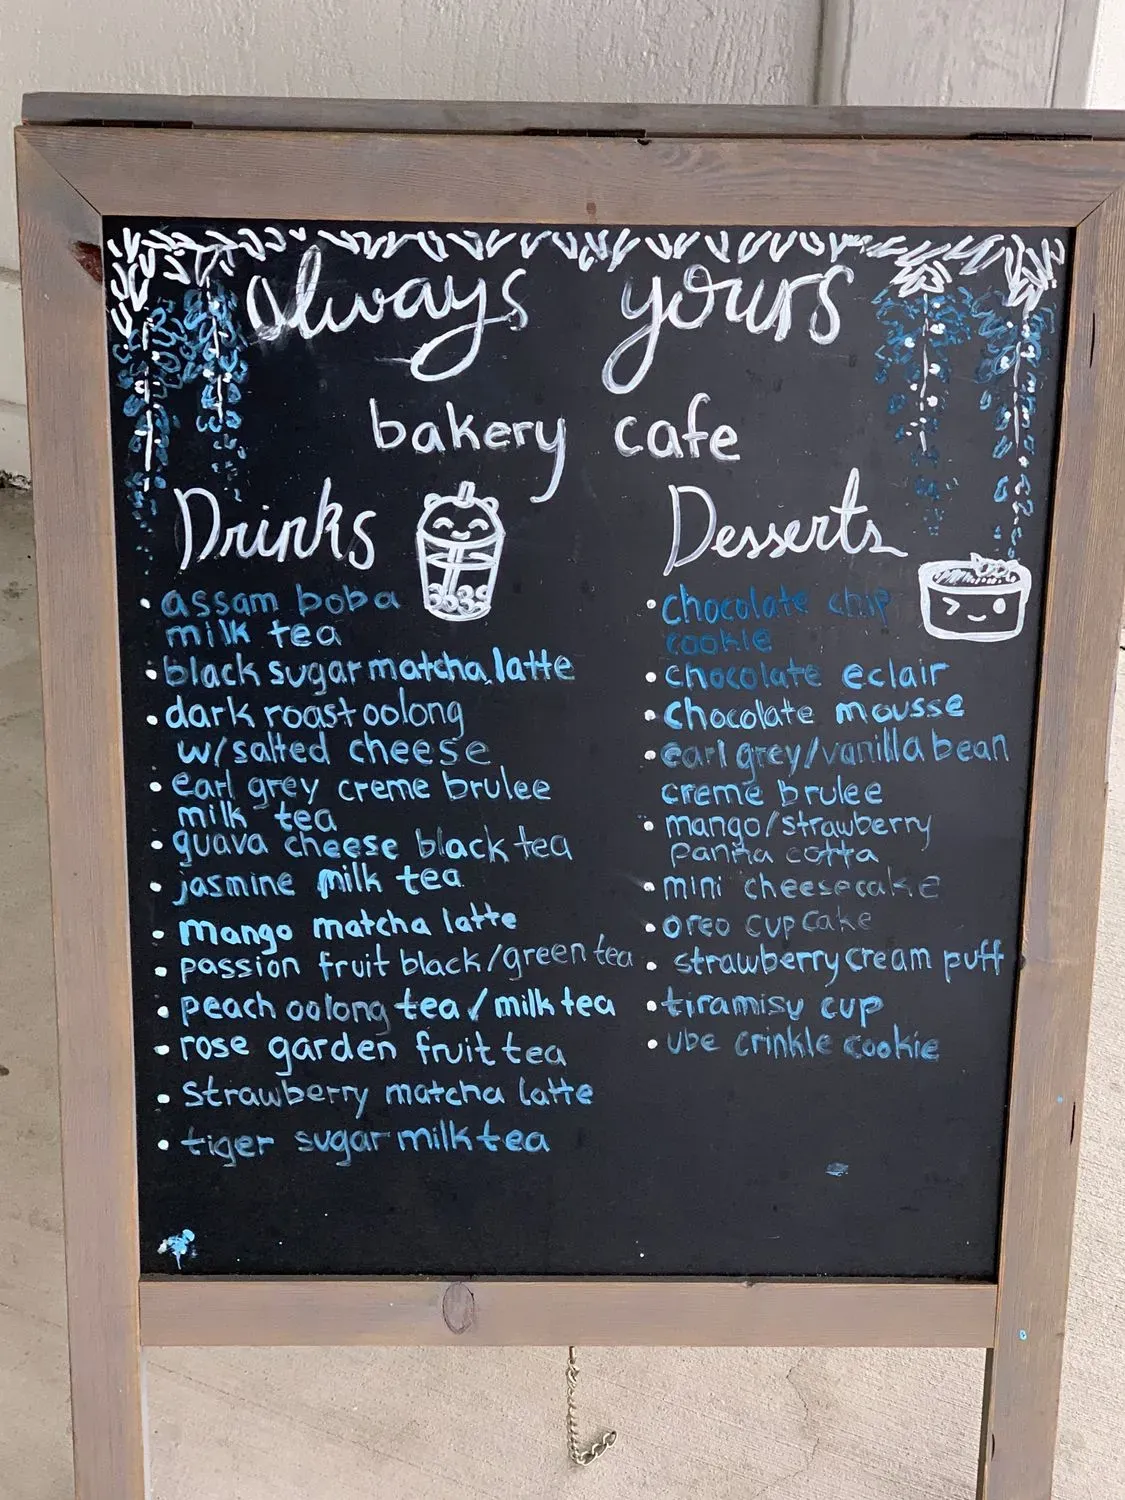 always yours
bakery cafe
Drinks
assam boba
milk tea
black sugar matcha latte
dark roast oolong
w/salted cheese
earl grey creme brulee
milk tea
guava cheese black tea
jasmine milk tea
mango matcha latte
passion fruit black/green tea
peach oolong tea/milk tea
rose garden fruit tea
strawberry matcha latte
tiger sugar milk tea
Desserts
chocolate chip
cookie
chocolate eclair
chocolate mousse
earl grey/vanilla bean
creme brulee
mango/strawberry
panna cotta
mini cheesecake
oreo cupcake
strawberry cream puff
tiramisu cup
ube crinkle cookie